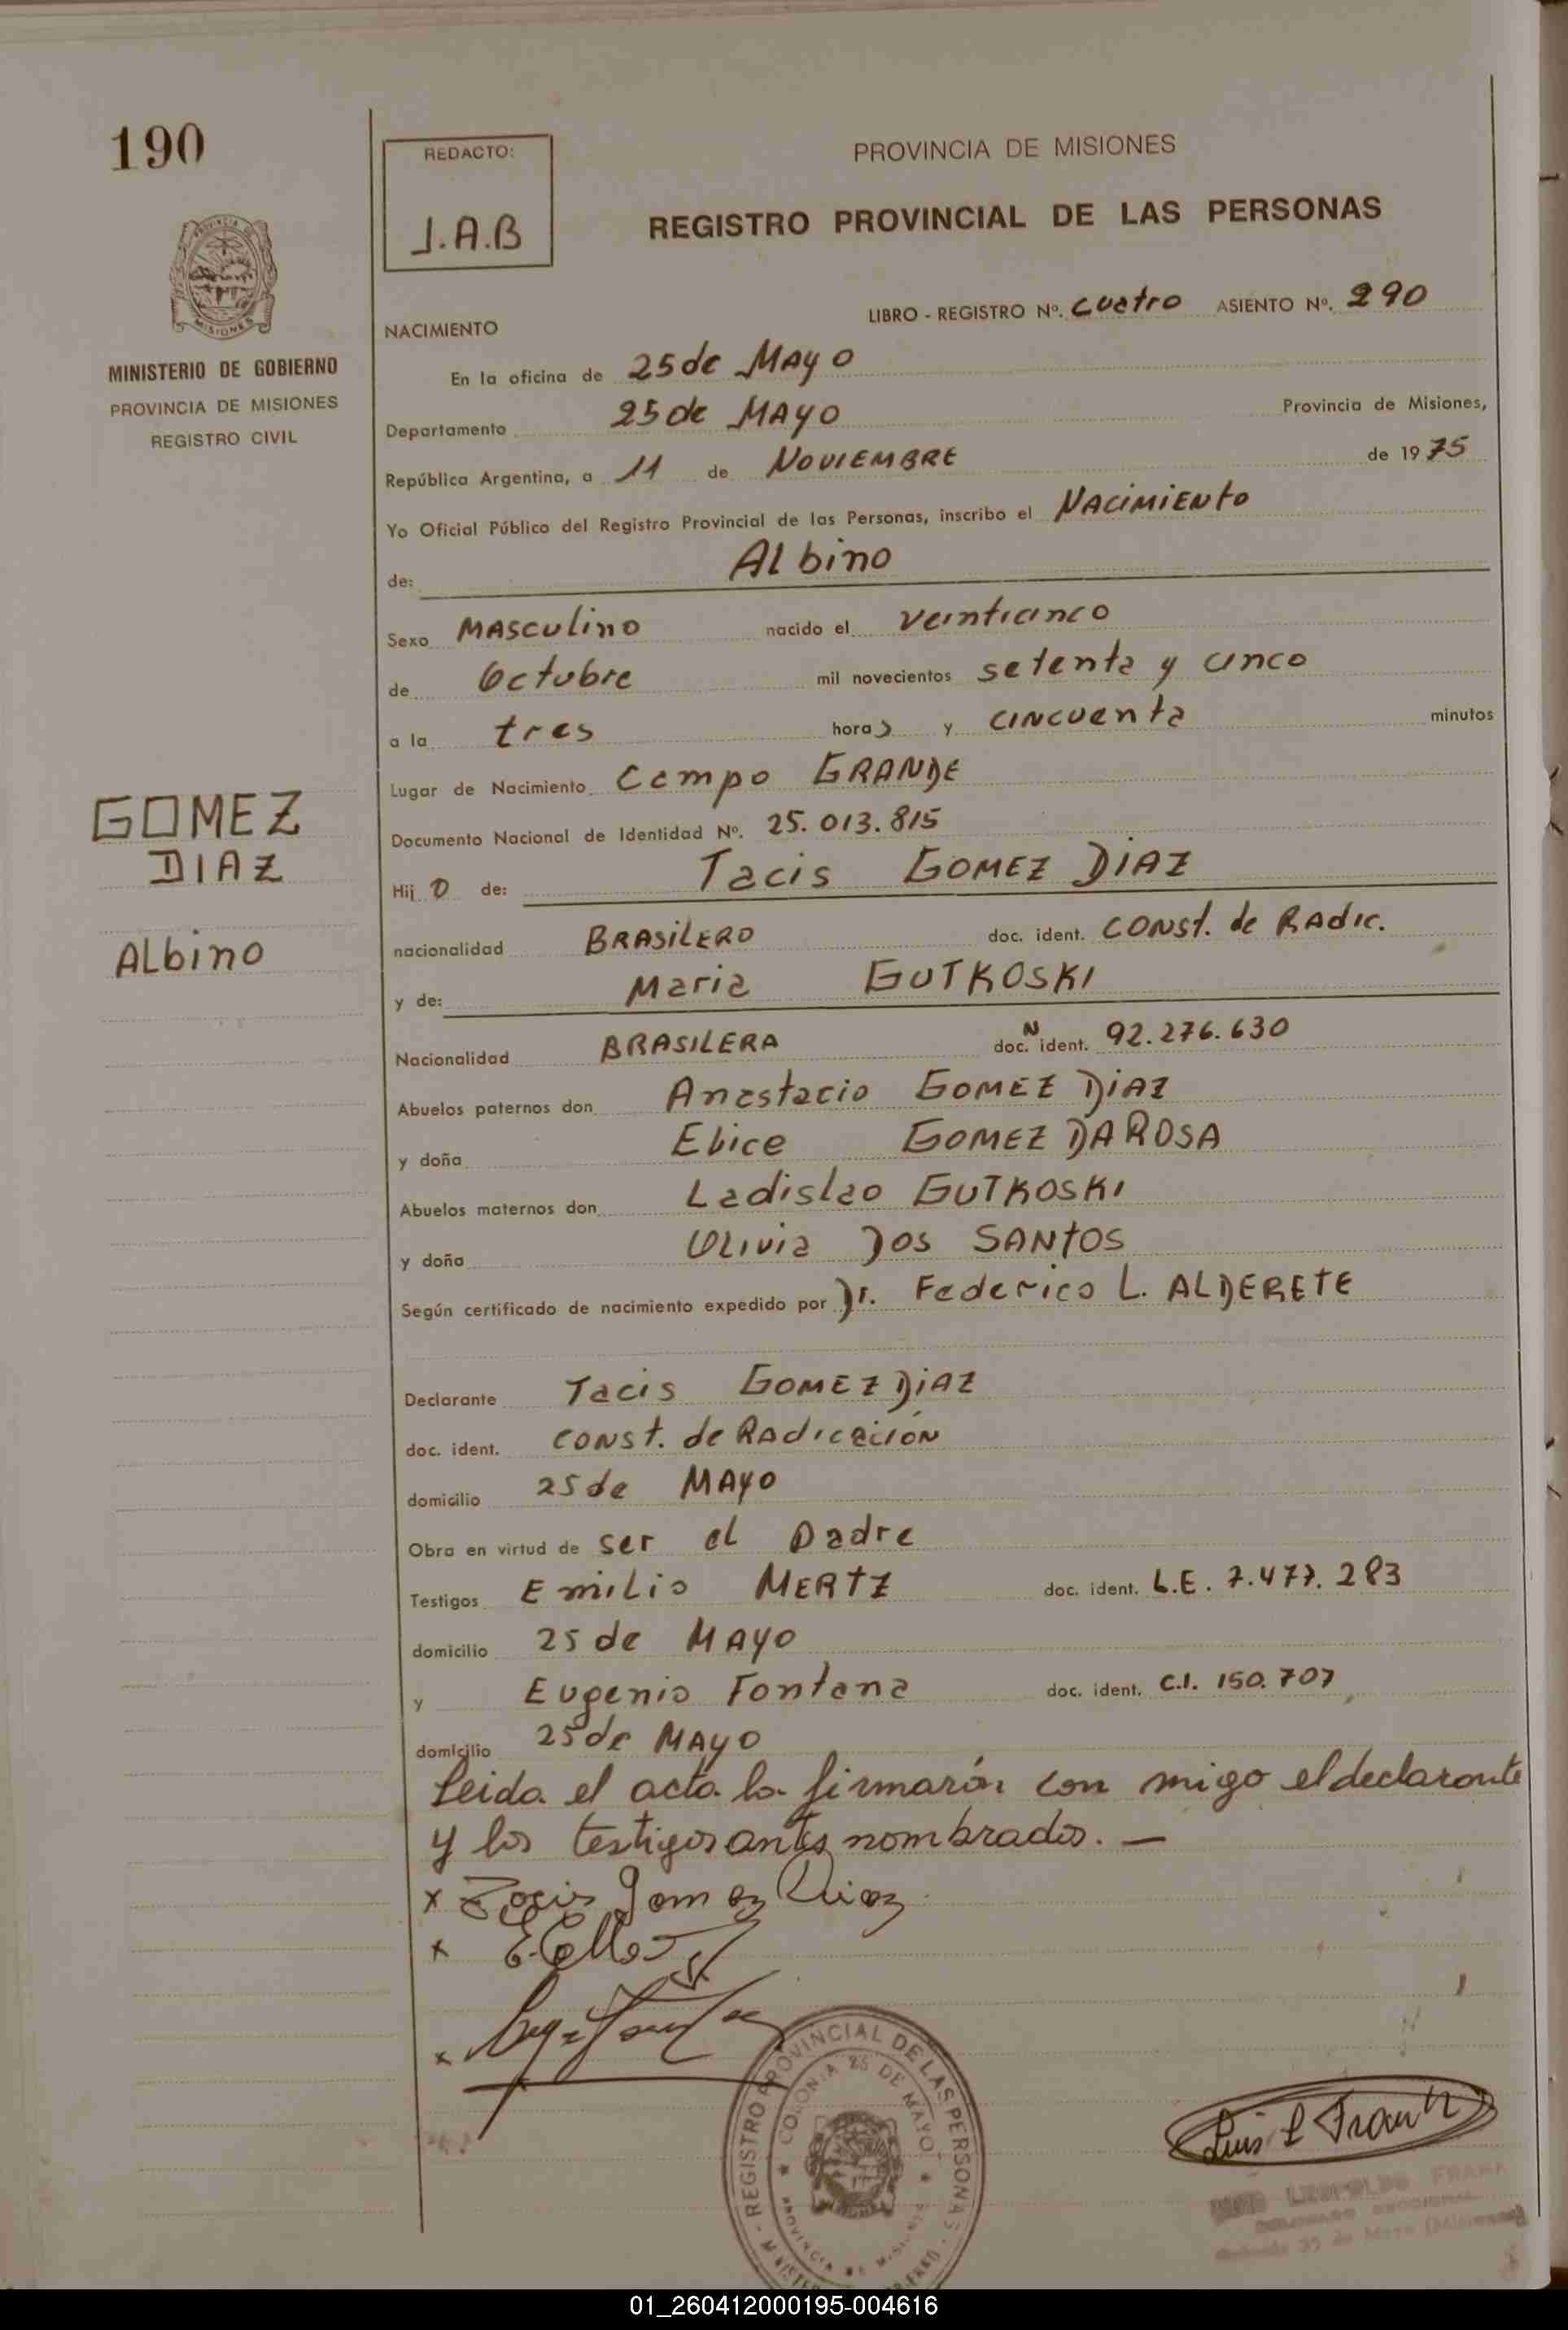 190
REDACTO:
J.A.B
PROVINCIA DE MISIONES
REGISTRO PROVINCIAL DE LAS PERSONAS
MISIONES
MINISTERIO DE GOBIERNO
PROVINCIA DE MISIONES
REGISTRO CIVIL
LIBRO - REGISTRO Nº. cuatro ASIENTO Nº. 290
NACIMIENTO
En la oficina de 25 de MAyo
Departamento 25 de MAyo Provincia de Misiones,
República Argentina, a 11 de NOVIEMBRE de 1975
Yo Oficial Público del Registro Provincial de las Personas, inscribo el NACIMIENTO
de: Albino
Sexo MASCULINO nacido el veinticinco
de Octubre mil novecientos setenta y cinco
a la tres horas y CINCUENTA minutos
Lugar de Nacimiento Campo GRANDE
Documento Nacional de Identidad Nº. 25.013.815
Hijo de: Tacis GOMEZ DIAZ
nacionalidad BRASILERO doc. ident. CONST. de RADIC.
y de: Maria GUTKOSKI
Nacionalidad BRASILERA doc. N ident. 92.276.630
Abuelos paternos don Anastacio GOMEZ DIAZ
y doña GOMEZ DA ROSA
Abuelos maternos don Ladislao GUTKOSKI
y doña Olivia DOS SANTOS
Según certificado de nacimiento expedido por Dr. Federico L. ALDERETE
Declarante Tacis GOMEZ DIAZ
doc. ident. CONST. de RADICACIÓN
domicilio 25 de MAYO
Obra en virtud de ser el padre
Testigos Emilio MERTZ doc. ident. L.E. 7.477.283
domicilio 25 de MAYO
y Eugenio Fontana doc. ident. C.I. 150.707
domicilio 25 de MAYO
Leida el acta la firmarón con migo el declarante
y los testigos antes nombrados. —
x Tacis Gomez Diaz
x
x
GOMEZ
DIAZ
Albino
REGISTRO PROVINCIAL DE LAS PERSONAS
COLONIA 25 DE MAYO
PROVINCIA DE MISIONES
Luis L Frank
01_260412000195-004616